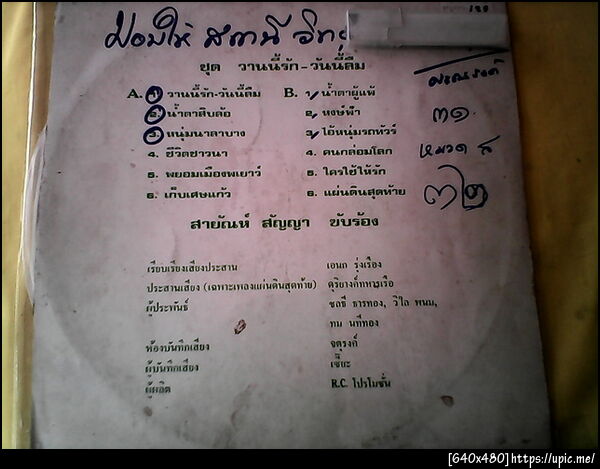 มอบให้ สถานี วิทยุ
ชุด วานนี้รัก-วันนี้ลืม
A. 1. วานนี้รัก-วันนี้ลืม B. 1. น้ำตาผู้แพ้
2. น้ำตาสิบล้อ 2. หงษ์ฟ้า
3. หนุ่มนาลาบาง 3. ไอ้หนุ่มรถทัวร์
4. ชีวิตชาวนา 4. คนกล่อมโลก
5. พยอมเมืองพเยาว์ 5. ใครใช้ให้รัก
6. เก็บเศษแก้ว 6. แผ่นดินสุดท้าย
๓๑
หมวด ส
๓๒
สายัณห์ สัญญา ขับร้อง
เรียบเรียงเสียงประสาน เอนก รุ่งเรือง
ประสานเสียง (เฉพาะเพลงแผ่นดินสุดท้าย) ดุริยางค์ทหารเรือ
ผู้ประพันธ์ ชลธี ธารทอง, วิไล พนม,
ทม นทีทอง
ห้องบันทึกเสียง จตุรงค์
ผู้บันทึกเสียง เซี๊ยะ
ผู้ผลิต R.C. โปรโมชั่น
[640x480]https://upic.me/